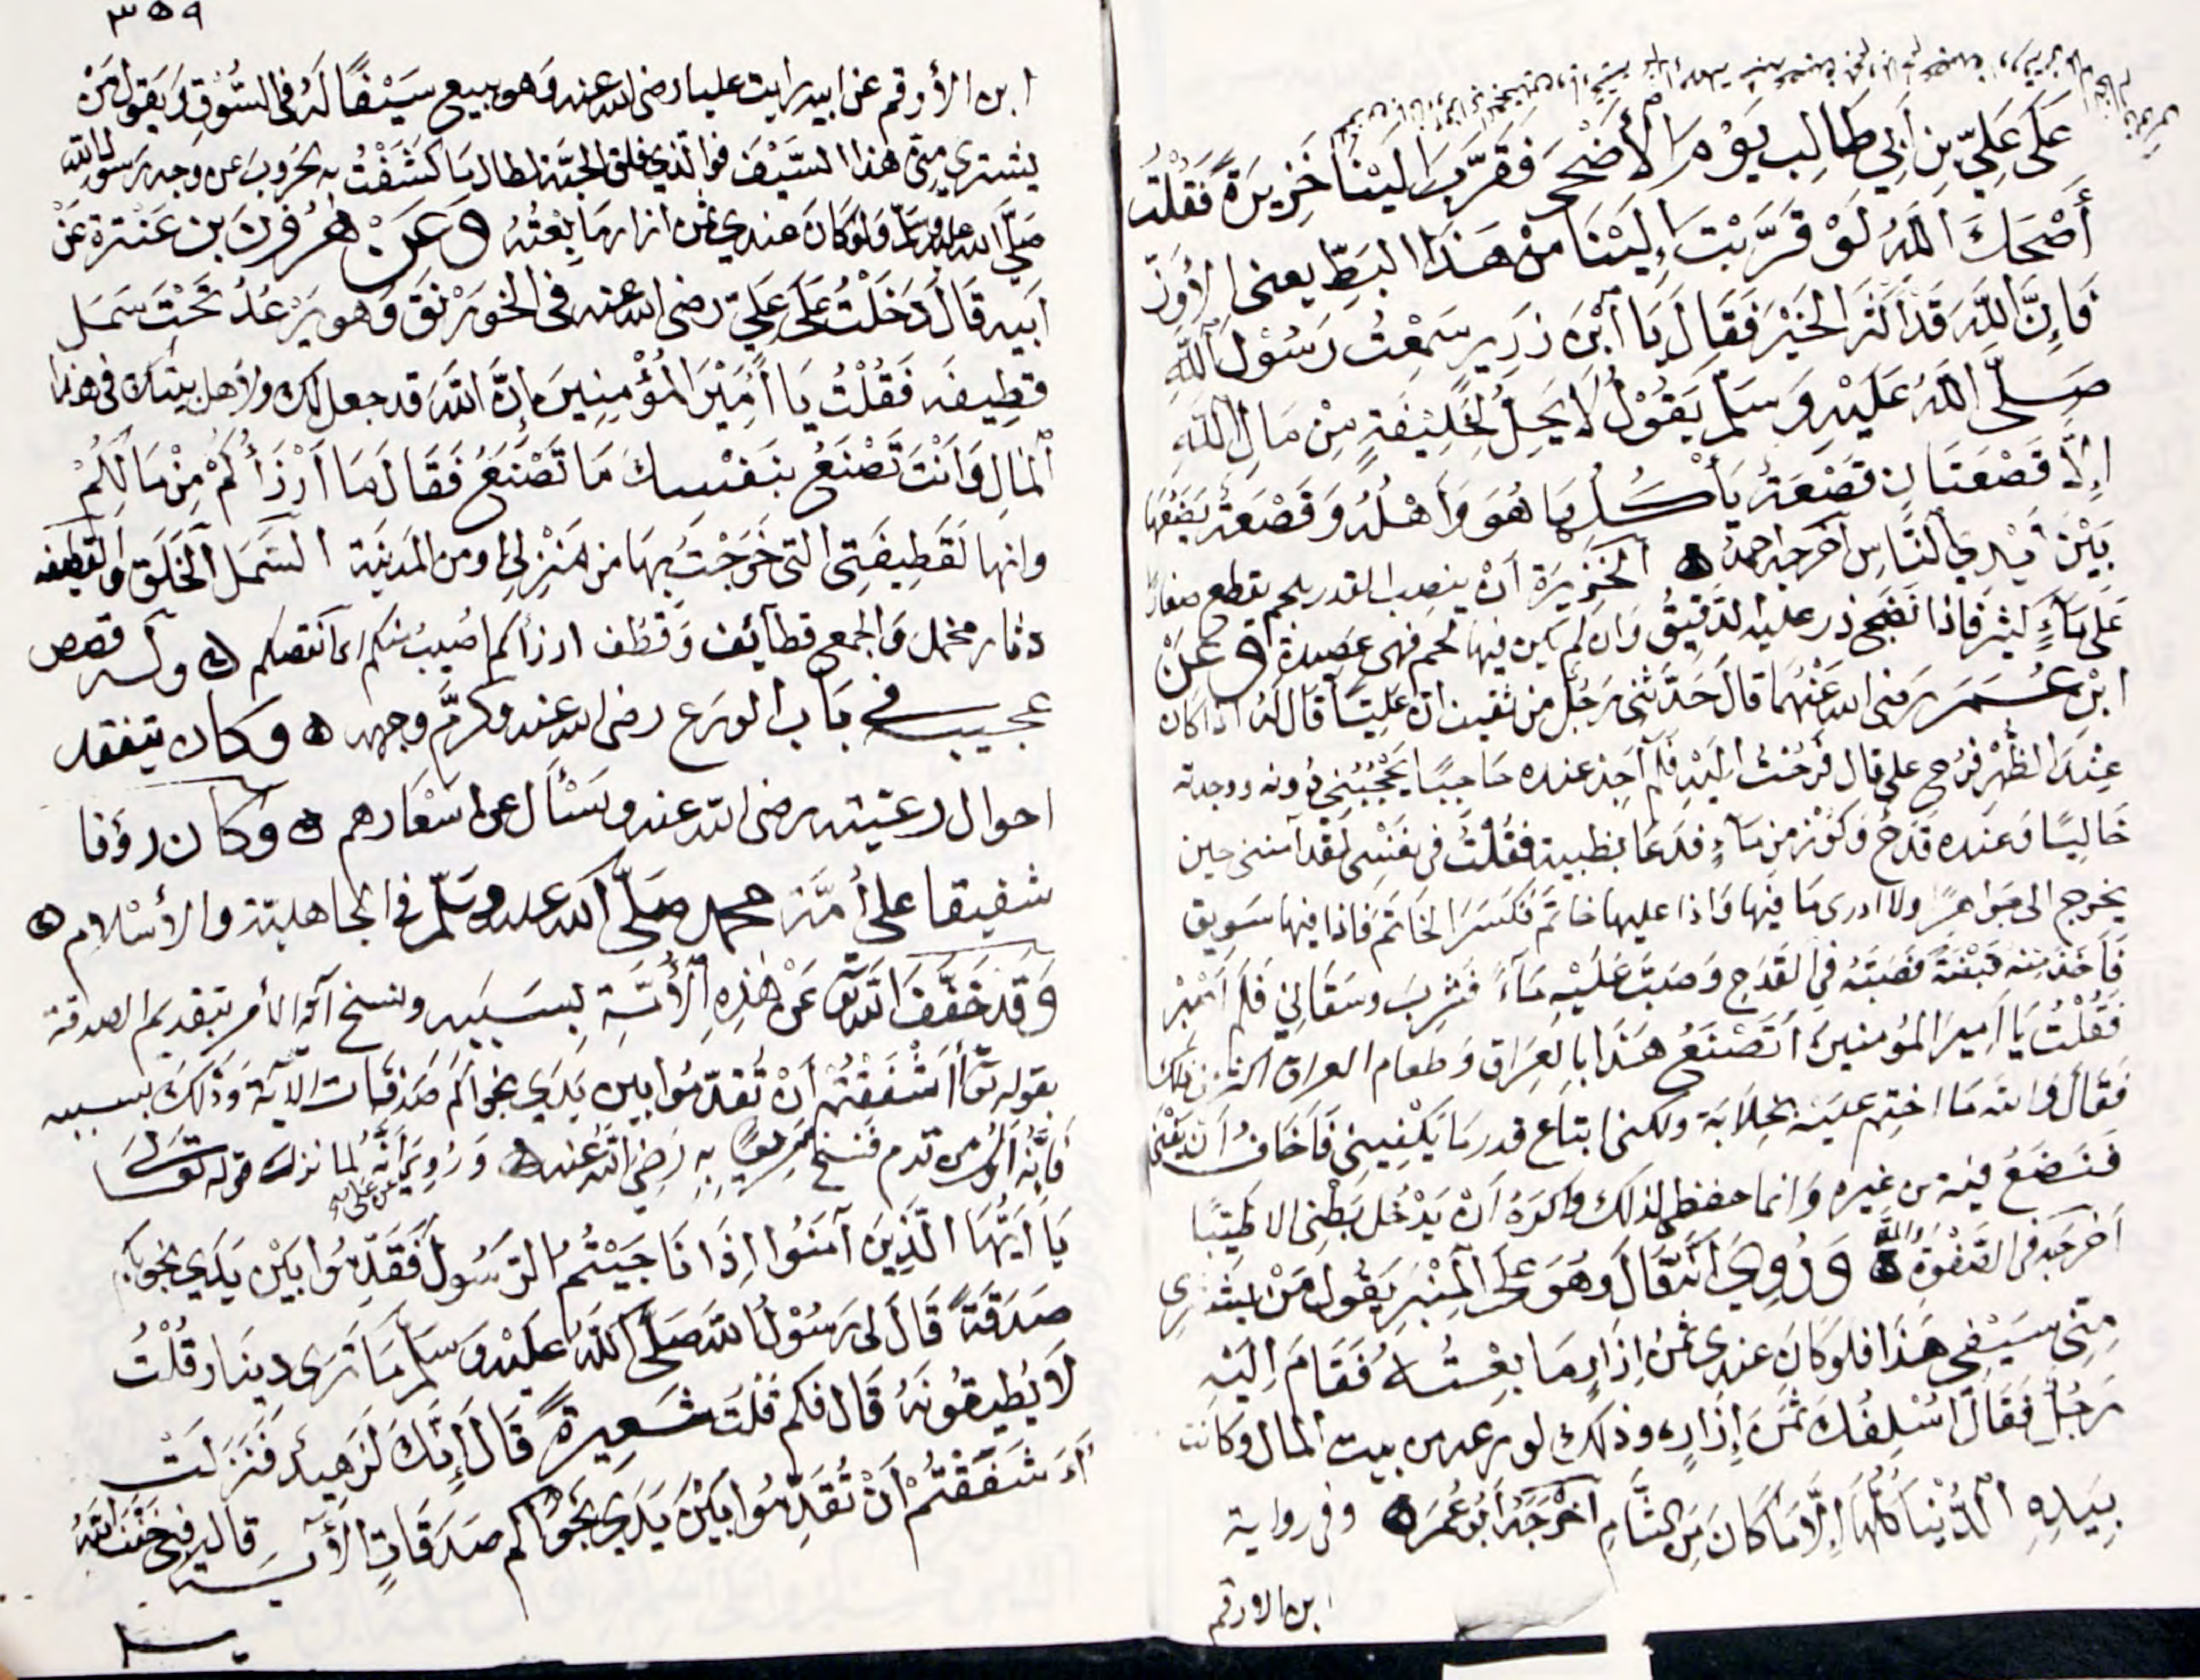 على علي بن أبي طالب يوم الأضحى فقرب الينا خزيرة فقلت
أصحك الله لو قربت إلينا من هذا البط يعني الاوز
فإن الله قد اكثر الخير فقال يا ابن زرير سمعت رسول الله
صلى الله عليه وسلم يقول لا يحل لخليفة من مال الله
الا قصعتان قصعة يأكلها هو وأهله وقصعة يضعها
بين أيدي الناس اخرجه احمد ه الخزيرة أن ينصب القدر بلحم يقطع صغارا
على ماء كثير فاذا نضج ذر عليه الدقيق وان لم يكن فيها لحم فهى عصيدة وعن
ابن عمر رضى الله عنهما قال حدثنى رجل من ثقيف ان عليا قال له اذا كان
عند الظهر فرح علي قال فرحت اليه فلم اجد عنده حاجبا يحجبني دونه ووجدته
خاليا وعنده قدح وكوز من ماء فدعا بظبية فقلت في نفسى لقد آمنني حين
يخرج الى جواهرا ولا ادرى ما فيها واذا عليها خاتم فكسر الخاتم فاذا فيها سويق
فأخذ منه قبضة فصبه في القدح وصب عليه ماء فشرب وسقاني فلم أصبر
فقلت يا امير المؤمنين اتصنع هذا بالعراق وطعام العراق اكثر من ذلك
فقال والله ما اختم عليه بخلا به ولكنى ابتاع قدر ما يكفيني فاخاف أن يفنى
فنضع فيه من غيره وانما حفظى لذلك واكره أن يدخل بطنى الا طيبا
اخرجه في الصفوة ه وروي أنه قال وهو على المنبر يقول من يشترى
منى سيفي هذا فلو كان عندى ثمن إزار ما بعته فقام اليه
رجل فقال اسلفك ثمن إزار ه وذلك لورعه من بيت المال وكانت
بيده الدنيا كلها إلا ما كان من الشام اخرجه أبو عمر ه وفى رواية
ابن الاورقم
٣٥٩
ابن الأورقم عن ابيه رايت عليا رضى الله عنه وهو يبيع سيفا له في السوق ويقول من
يشتري مني هذا السيف فوالذي فلق الحبة لطال ما كشفت به الحروب عن وجه رسول الله
صلى الله عليه وسلم ولو كان عندي ثمن ازار ما بعته وعن هرون بن عنترة عن
ابيه قال دخلت على علي رضى الله عنه في الخورنق وهو يرعد تحت سمل
قطيفه فقلت يا أمير المؤمنين إن الله قد جعل لك ولأهل بيتك في هذا
المال وانت تصنع بنفسك ما تصنع فقال ما أرزأكم من مالكم
وانها لقطيفتى التى خرجت بها من منزلى او من المدينة السمل الخلق والقطيفه
دثار مخمل والجمع قطائف وقطف ارزأكم اصيب منكم اى انقصكم ه وله قصص
عجيبه في باب الورع رضى الله عنه وكرم وجهه ه وكان يتفقد
احوال رعيته رضى الله عنه ويسأل عن اسعارهم ه وكان رؤفا
شفيقا على أمة محمد صلى الله عليه وسلم في الجاهلية والأسلام ه
وقد خفف الله عن هذه الأمة بسببه ونسخ آية الأمر بتقديم الصدقة
بقوله تعا أأشفقتم أن تقدموا بين يدي نجواكم صدقات الآية وذلك بسببه
فانه اول من قدم فنسخ به رضي الله عنه ه وروي أنه لما نزلت قوله تعالى
يا أيها الذين آمنوا اذا ناجيتم الرسول فقدموا بين يدي نجواكم
صدقة قال لى رسول الله صلى الله عليه وسلم ما ترى دينار قلت
لا يطيقونه قال فكم قلت شعيرة قال إنك لزهيد فنزلت
أاشفقتم أن تقدموا بين يدي نجواكم صدقات الآية قال فبي خفف الله